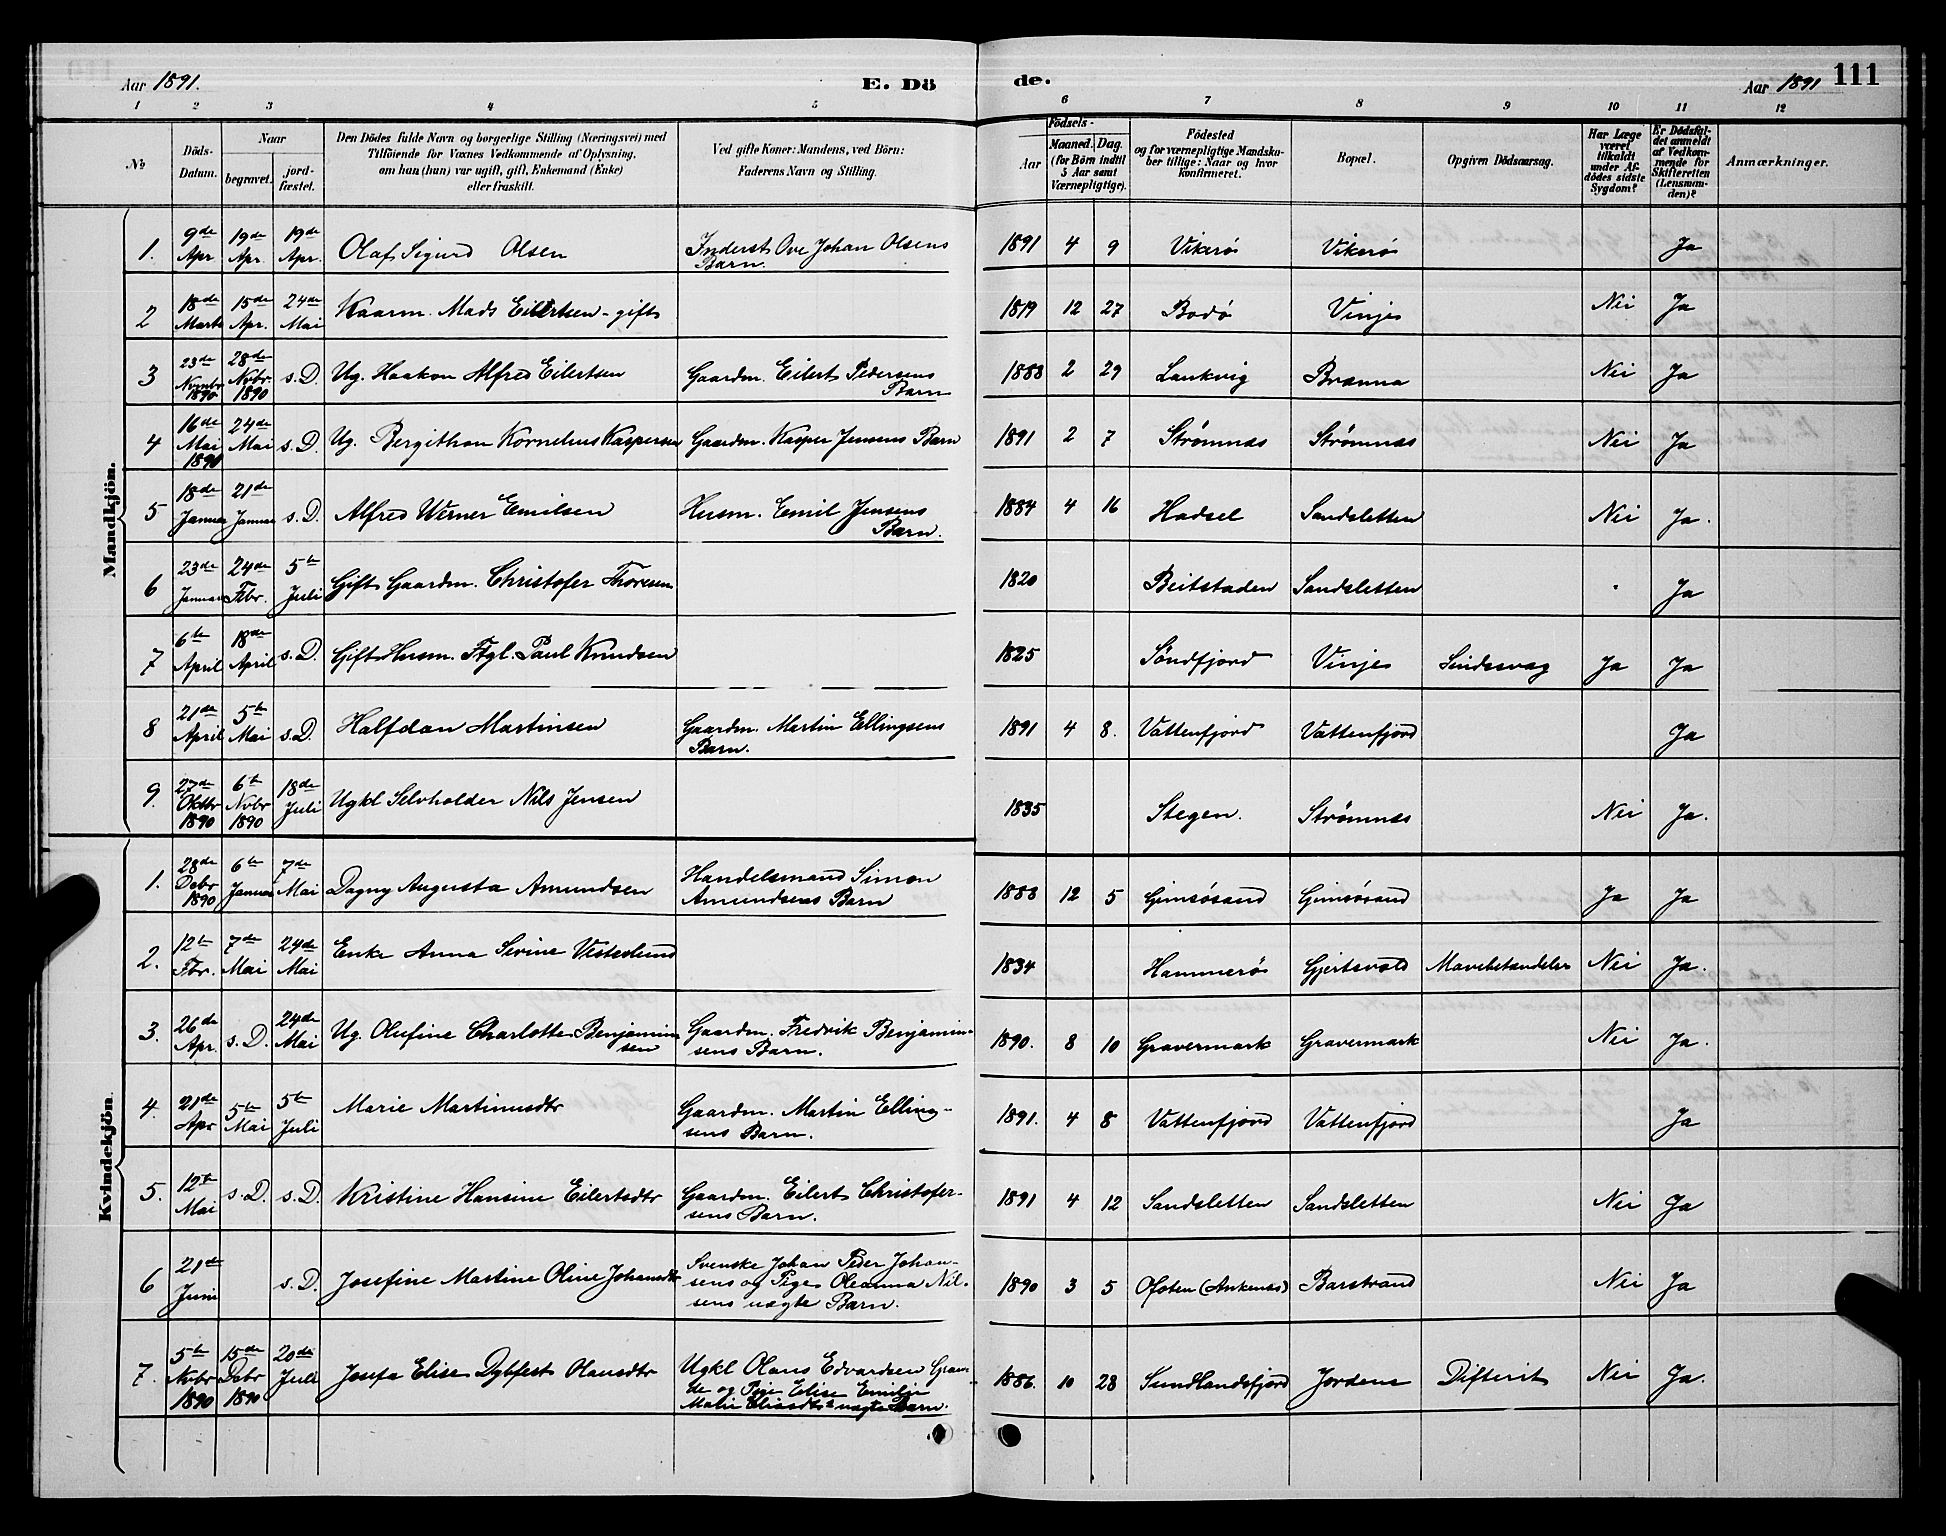 Aar 1891. E. Döde. Aar 1891 111
1 2 3 4 5 6 7 8 9 10 11 12
№
Döds-Datum.
Naar
begravet.
jord-fæstet.
Den Dödes fulde Navn og borgerlige Stilling (Næringsvei) med
Tilföiende for Voxnes Vedkommende af Oplysning,
om han (hun) var ugift, gift, Enkemand (Enke)
eller fraskilt.
Ved gifte Koner: Mandens, ved Börn:
Faderens Navn og Stilling.
Födsels-
Aar
Maaned. Dag.
(for Börn indtil
5 Aar samt
Værnepligtige).
Födested
og for værnepligtige Mandska-
ber tillige: Naar og hvor
konfirmeret.
Bopæl.
Opgiven Dödsaarsag.
Har Læge
været
tilkaldt
under Af-
dödes sidste
Sygdom?
Er Dödsfal-
det anmeldt
af Vedkom-
mende for
Skifteretten
(Lensman-
den)?
Anmærkninger.
Mandkjön.
1. 9de Apr. 19de Apr. 19de Apr. Olaf Sigurd Olsen Inderst Ove Johan Olsens Barn. 1891 4 9 Vikerø Vikerø Ja
2 18de Marts 15de Apr. 24de Mai Kaarm. Mads Eilertsen - gift 1819 12 27 Bodø Vinje Nei Ja
3 23de Novbr 1890 28de Novbr. 1890 s. D. Ug. Haakon Alfred Eilertsen Gaardm. Eilert Pedersens Barn 1888 2 29 Laukvig Brenna Nei Ja
4 16de Mai 1891 24de Mai s. D. Ug. Bergithon Kornelius Kaspersen Gaardm. Kasper Jensens Barn 1891 2 7 Strømnæs Strømnæs Nei Ja
5 18de Januar 21de Januar s. D. Alfred Werner Emilsen Husm. Emil Jensens Barn. 1884 4 16 Hadsel Sandsletten Nei Ja.
6 23de Januar 24de Febr. 5te Juli Gift Gaardm. Christofer Thoresen 1820 Beitstaden Sandsletten Ja
7 6te April 18de April s. D. Gift Husm. Ftgl. Paul Knudsen 1825 Søndfjord Vinje Sindssvag Ja Ja
8 21de April 5te Mai s. D. Halfdan Martinsen Gaardm. Martin Ellingsens Barn. 1891 4 8. Vattenfjord Vattenfjord Ja
9. 27de Oktbr 1890 6te Novbr 1890 18de Juli Ugkl Selvholder Nils Jensen 1835 Stegen. Strømnæs Nei Ja.
Kvindekjön.
1. 28de Debr 1890 6te Januar 7de Mai Dagny Augusta Amundsen Handelsmand Simon Amundsens Barn 1888 12 5 Gimsøsand Gimsøsand Ja Ja
2. 12te Fbr. 7de Mai 24de Mai Enke Anna Serine Vesterlund 1834 Hammerø Gjertsvold Nei Ja.
3. 26de Apr. s. D. 24de Mai Ug. Olufine Charlotte Benjaminsen Gaardm. Fredrik Benjaminsens Barn. 1890. 8 10 Gravermark Gravermark Nei Ja.
4. 21de Apr 5te Mai 5te Juli Marie Martinusdtr Gaardm. Martin Ellingsens Barn. 1891. 4 8 Vattenfjord Vattenfjord Ja
5. 12te Mai s. D. s. D. Kristine Hansine Eilertsdtr Gaardm. Eilert Christofersens Barn. 1891 4 12 Sandsletten Sandsletten Nei Ja
6 21de Juni s. D. Josefine Martine Oline Johansdtr Svenske Johan Peder Johansens og Pige Oleanna Nilsens uægte Barn. 1890 3 5 Ofoten (Ankenæs) Barstrand Nei Ja
7. 5te Novbr 1890 15de Debr 1890 20de Juli Josefa Elise Dybfest Olausdtr Ugkl Olaus Edvardsen og Pige Elise Emilie uægte Barn. 1886. 10 28 Sundlandsfjord Jorden Difterit Nei Ja.